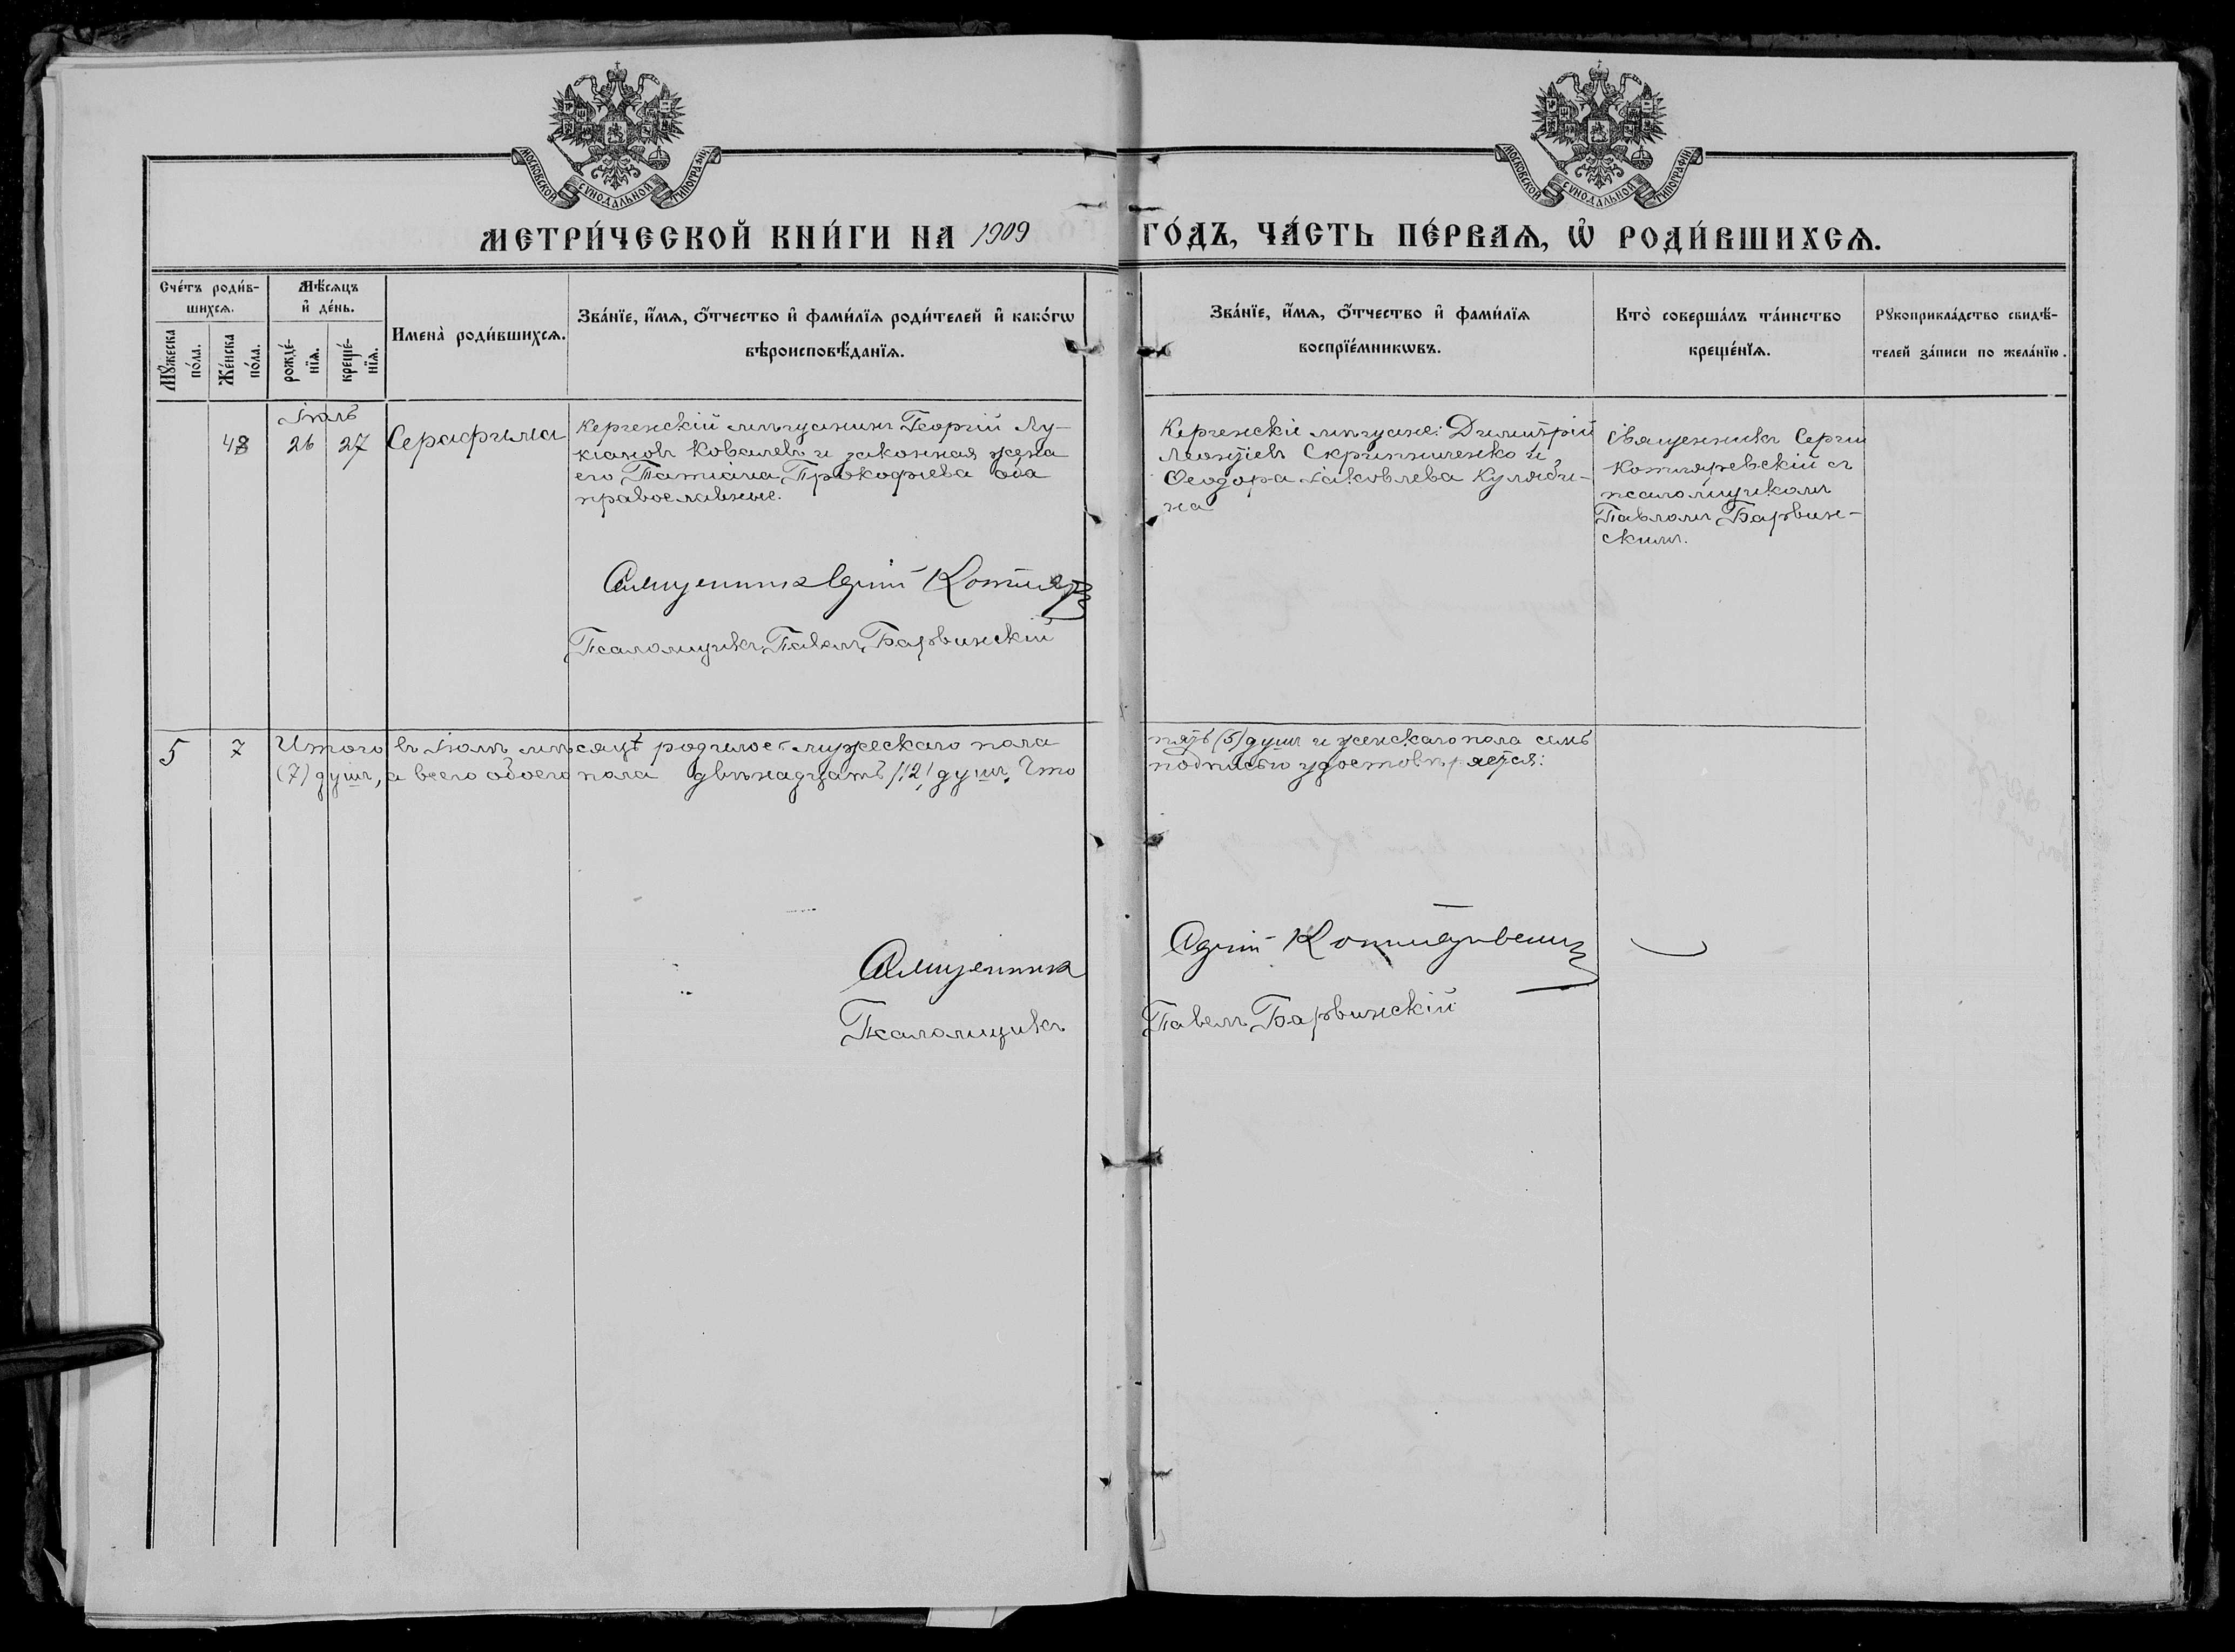 МОСКОВСКОЙ СѴНОДАЛЬНОЙ ТИПОГРАФІИ
МОСКОВСКОЙ СѴНОДАЛЬНОЙ ТИПОГРАФІИ
МЕТРИ́ЧЕСКОЙ КНИ́ГИ НА 1909
ГО́ДЪ, ЧА́СТЬ ПЕ́РВАѦ, Ѡ҆ РОДИ́ВШИХСѦ.
Сче́тъ роди́в-
шихсѧ.
Мꙋ́жеска
по́ла.
Же́нска
по́ла.
Мѣ́сѧцъ
и҆ де́нь.
рожде́-
нїѧ.
креще́-
нїѧ.
Имена̀ роди́вшихсѧ.
Зва́нїе, и҆́мѧ, ѻ҆́тчество и҆ фами́лїѧ роди́телей и҆ како́гѡ
вѣроисповѣ́данїѧ.
Зва́нїе, и҆́мѧ, ѻ҆́тчество и҆ фами́лїѧ
воспрїе́мникѡвъ.
Кто̀ соверша́лъ та́инство
креще́нїѧ.
Рꙋкоприкла́дство свидѣ́-
телей за́писи по жела́нїю.
Іюль
48 26 27 Серафима
Керченскій мѣщанинъ Георгій Лу-
кіановъ Ковалевъ и законная жена
его Татіана Прокофіева оба
православные.
Керченскіе мѣщане: Димитрій
Леонтіевъ Скрипниченко и
Ѳеодора Іаковлева Кулябки-
на
Священникъ Сергій
Котляревскій съ
псаломщикомъ
Павломъ Барвин-
скимъ.
Священникъ Сергій Котляр
Псаломщикъ Павелъ Барвинскій
5 7 Итого въ Іюлѣ мѣсяцѣ родилось мужескаго пола
пять (5) душъ и женскаго пола семь
(7) душъ, а всего обоего пола двѣнадцать (12) душъ. Что
подписью удостовѣряется:
Священникъ
Сергій Котляревскій
Псаломщикъ
Павелъ Барвинскій